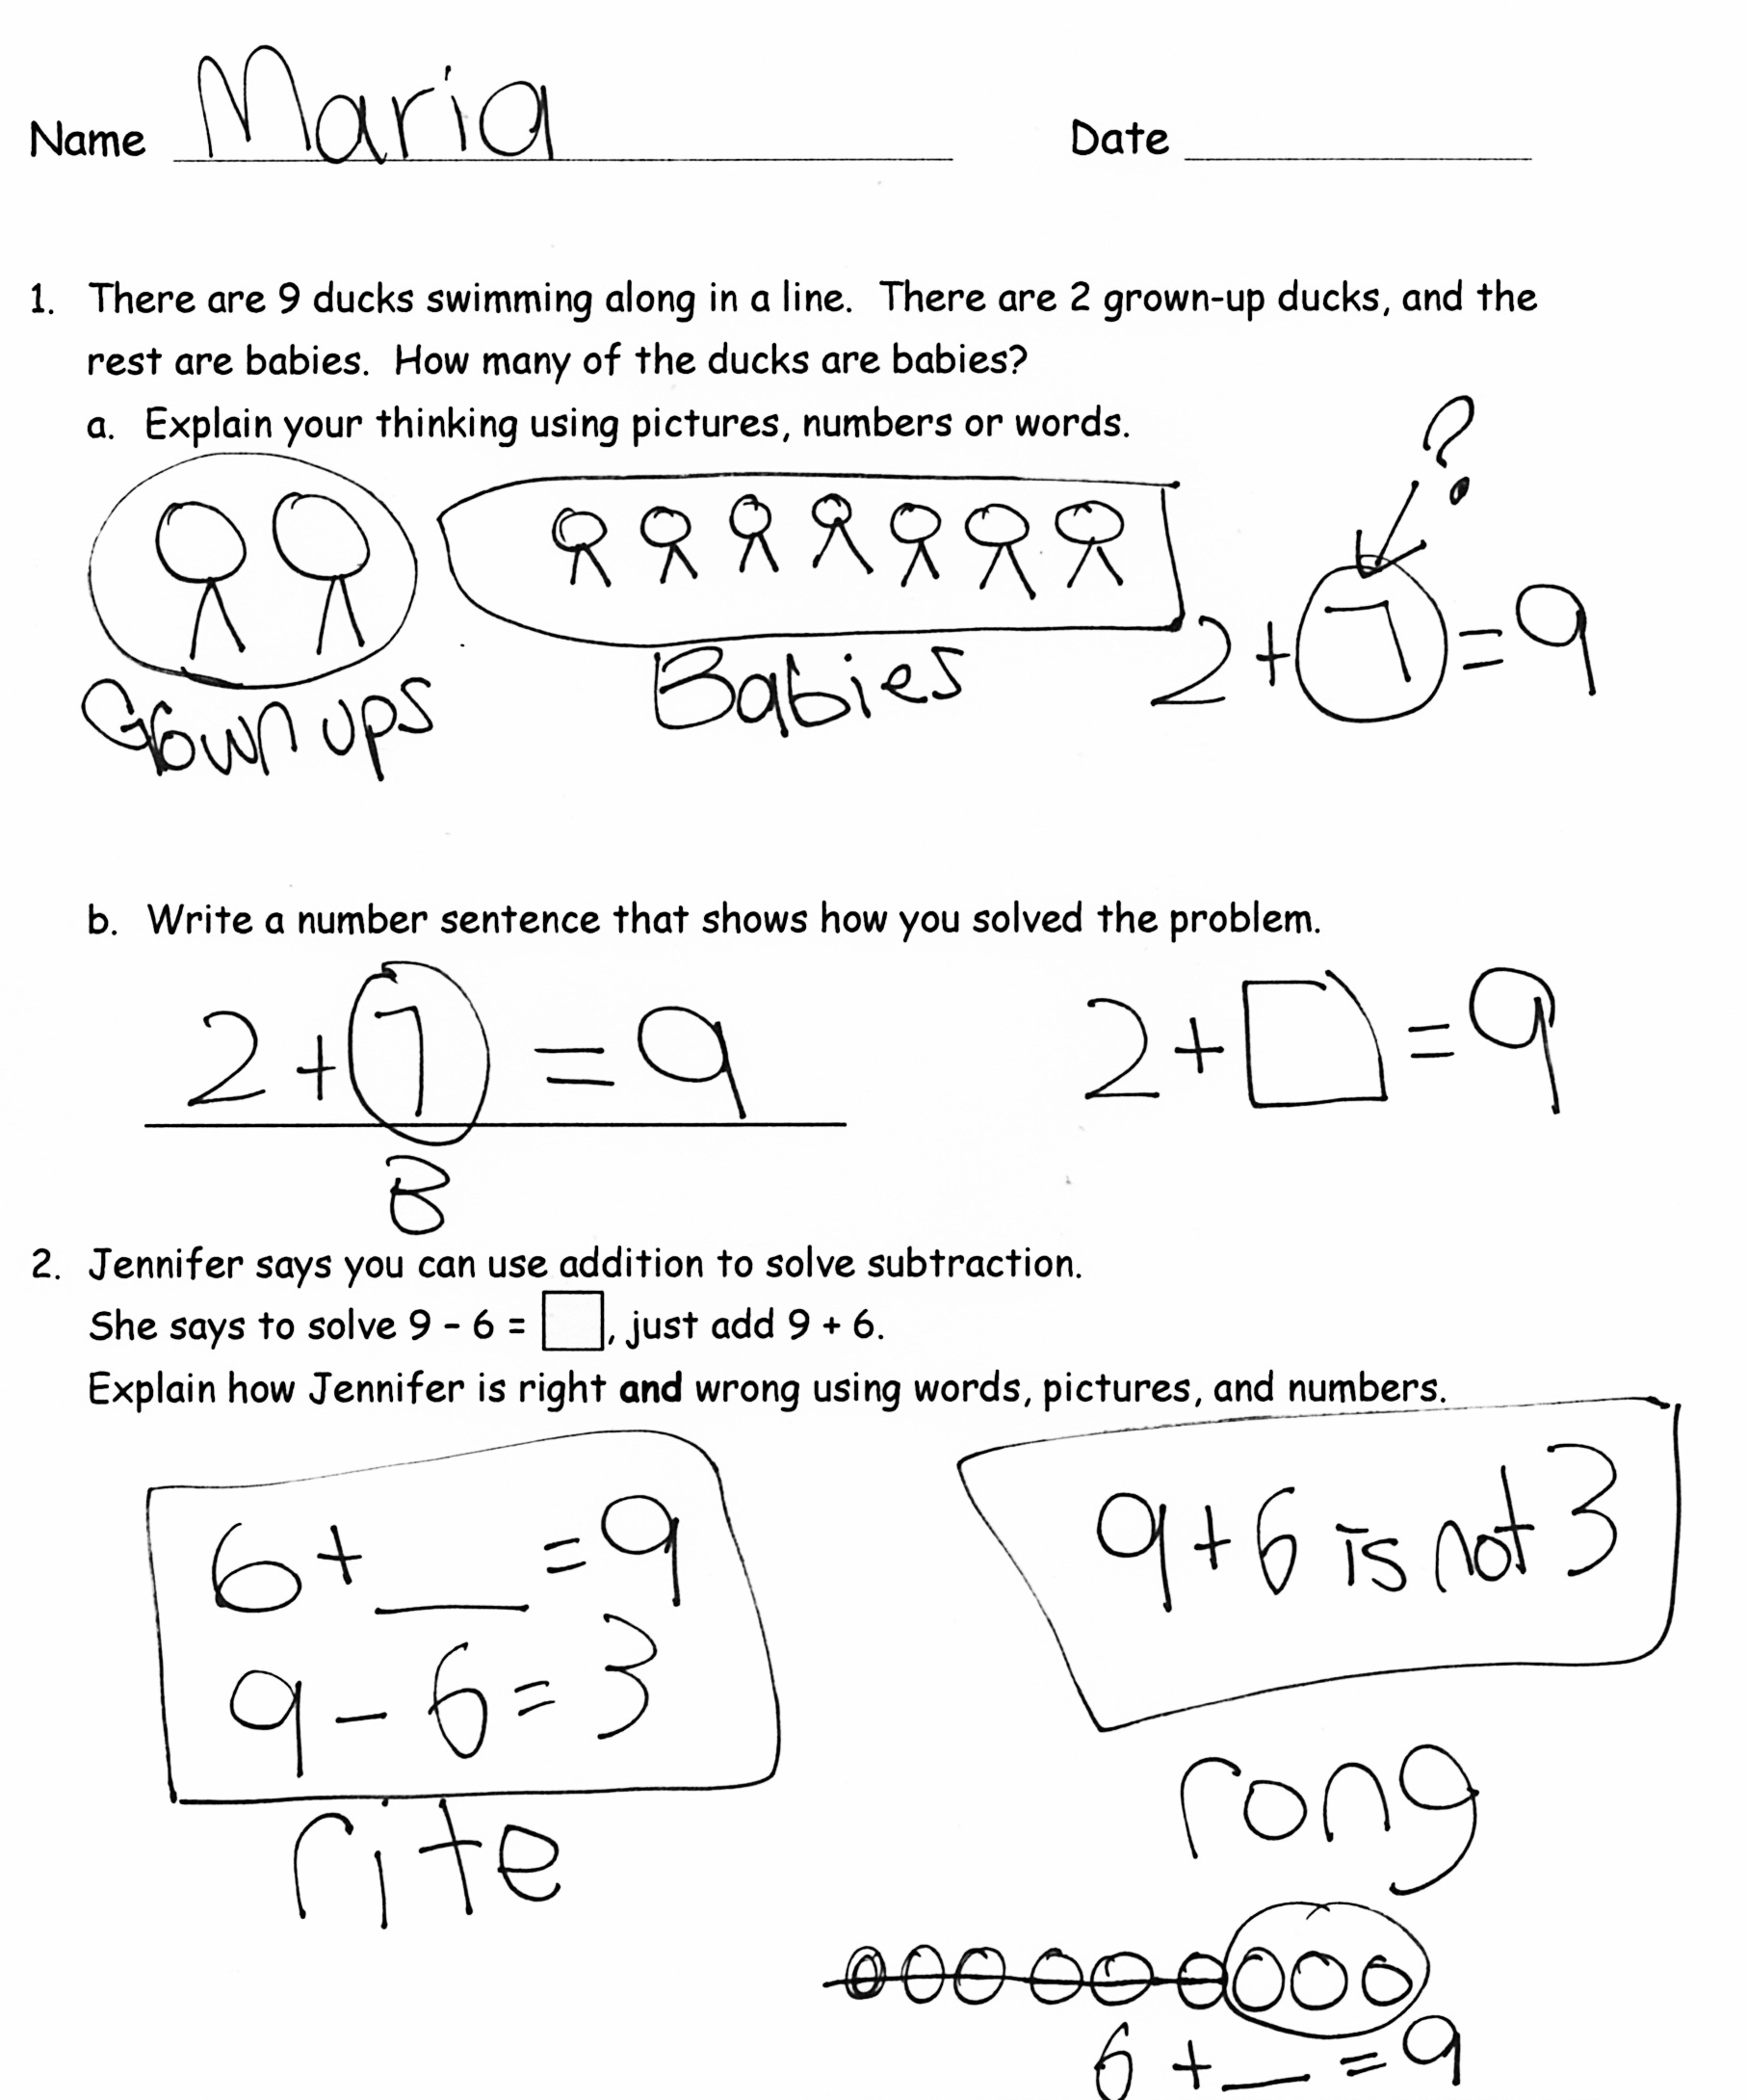 Name Maria Date
1. There are 9 ducks swimming along in a line. There are 2 grown-up ducks, and the
rest are babies. How many of the ducks are babies?
a. Explain your thinking using pictures, numbers or words.
?
2 + 7 = 9
Grown ups
Babies
b. Write a number sentence that shows how you solved the problem.
2 + 7 = 9 2 + □ = 9
B
2. Jennifer says you can use addition to solve subtraction.
She says to solve 9 - 6 = □, just add 9 + 6.
Explain how Jennifer is right and wrong using words, pictures, and numbers.
6 + ___ = 9
9 - 6 = 3
rite
9 + 6 is not 3
rong
6 + __ = 9